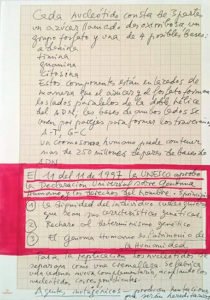 Cada nucleótido consta de 3 partes
un azúcar llamado desoxirribosa un
grupo fosfato y una de 4 posibles bases:
adenina
timina
guanina
citosina
Estos componentes están enlazados de
manera que el azúcar y el fosfato forman
los lados paralelos de la doble hélice
del ADN. Las bases de ambos lados se
unen por parejas para formar los travesaños
A-T, G-C
Un cromosoma humano puede contener
más de 250 millones de pares de bases de
ADN
El 11 del 11 de 1997 la UNESCO aprobó
la Declaración Universal sobre Genoma
Humano y los Derechos del Hombre
1 La dignidad del individuo cualesquiera
que sean sus características genéticas.
2 Rechazo al determinismo genético
3 El genoma humano es patrimonio de
la Humanidad.
Para la replicación los nucleótidos se
separan como una cremallera
nucleótidos correspondientes.
Agentes mutagénicos = producen mutaciones